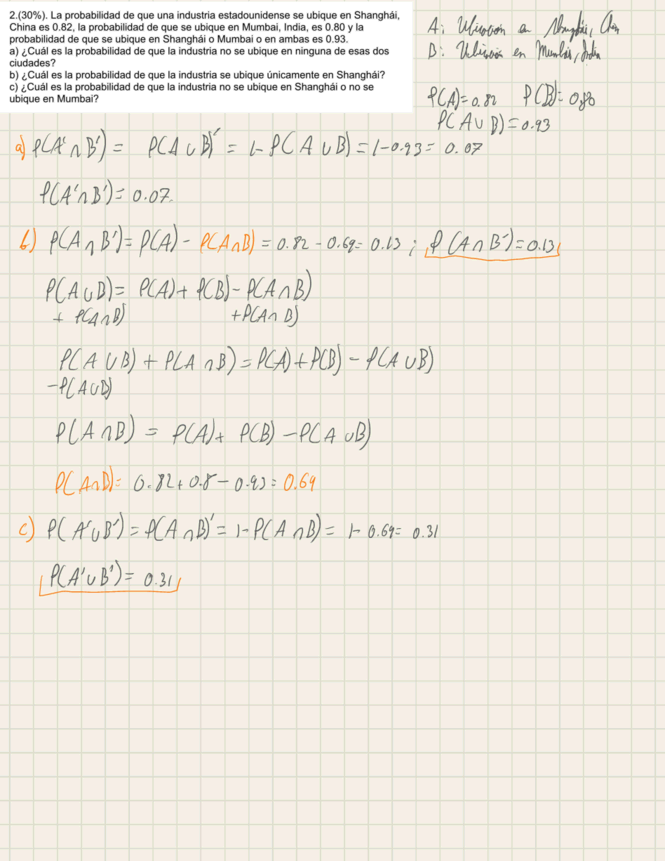 2.(30%). La probabilidad de que una industria estadounidense se ubique en Shanghái,
China es 0.82, la probabilidad de que se ubique en Mumbai, India, es 0.80 y la
probabilidad de que se ubique en Shanghái o Mumbai o en ambas es 0.93.
a) ¿Cuál es la probabilidad de que la industria no se ubique en ninguna de esas dos
ciudades?
b) ¿Cuál es la probabilidad de que la industria se ubique únicamente en Shanghái?
c) ¿Cuál es la probabilidad de que la industria no se ubique en Shanghái o no se
ubique en Mumbai?
A: Ubicación en Shanghái, China
B: Ubicación en Mumbai, India
P(A)=0.82 P(B)=0.80
P(A∪B)=0.93
a) P(A'∩B')= P(A∪B)' = 1-P(A∪B)=1-0.93= 0.07
P(A'∩B')=0.07.
b) P(A∩B')=P(A)-P(A∩B)=0.82-0.69=0.13; P(A∩B')=0.13
P(A∪B)= P(A)+P(B)-P(A∩B)
+ P(A∩B) +P(A∩B)
P(A∪B)+P(A∩B)=P(A)+P(B)-P(A∪B)
-P(A∪B)
P(A∩B) = P(A)+ P(B)-P(A∪B)
P(A∩B)= 0.82+0.8-0.93=0.69
c) P(A'∪B')=P(A∩B)'=1-P(A∩B)= 1-0.69= 0.31
P(A'∪B')= 0.31